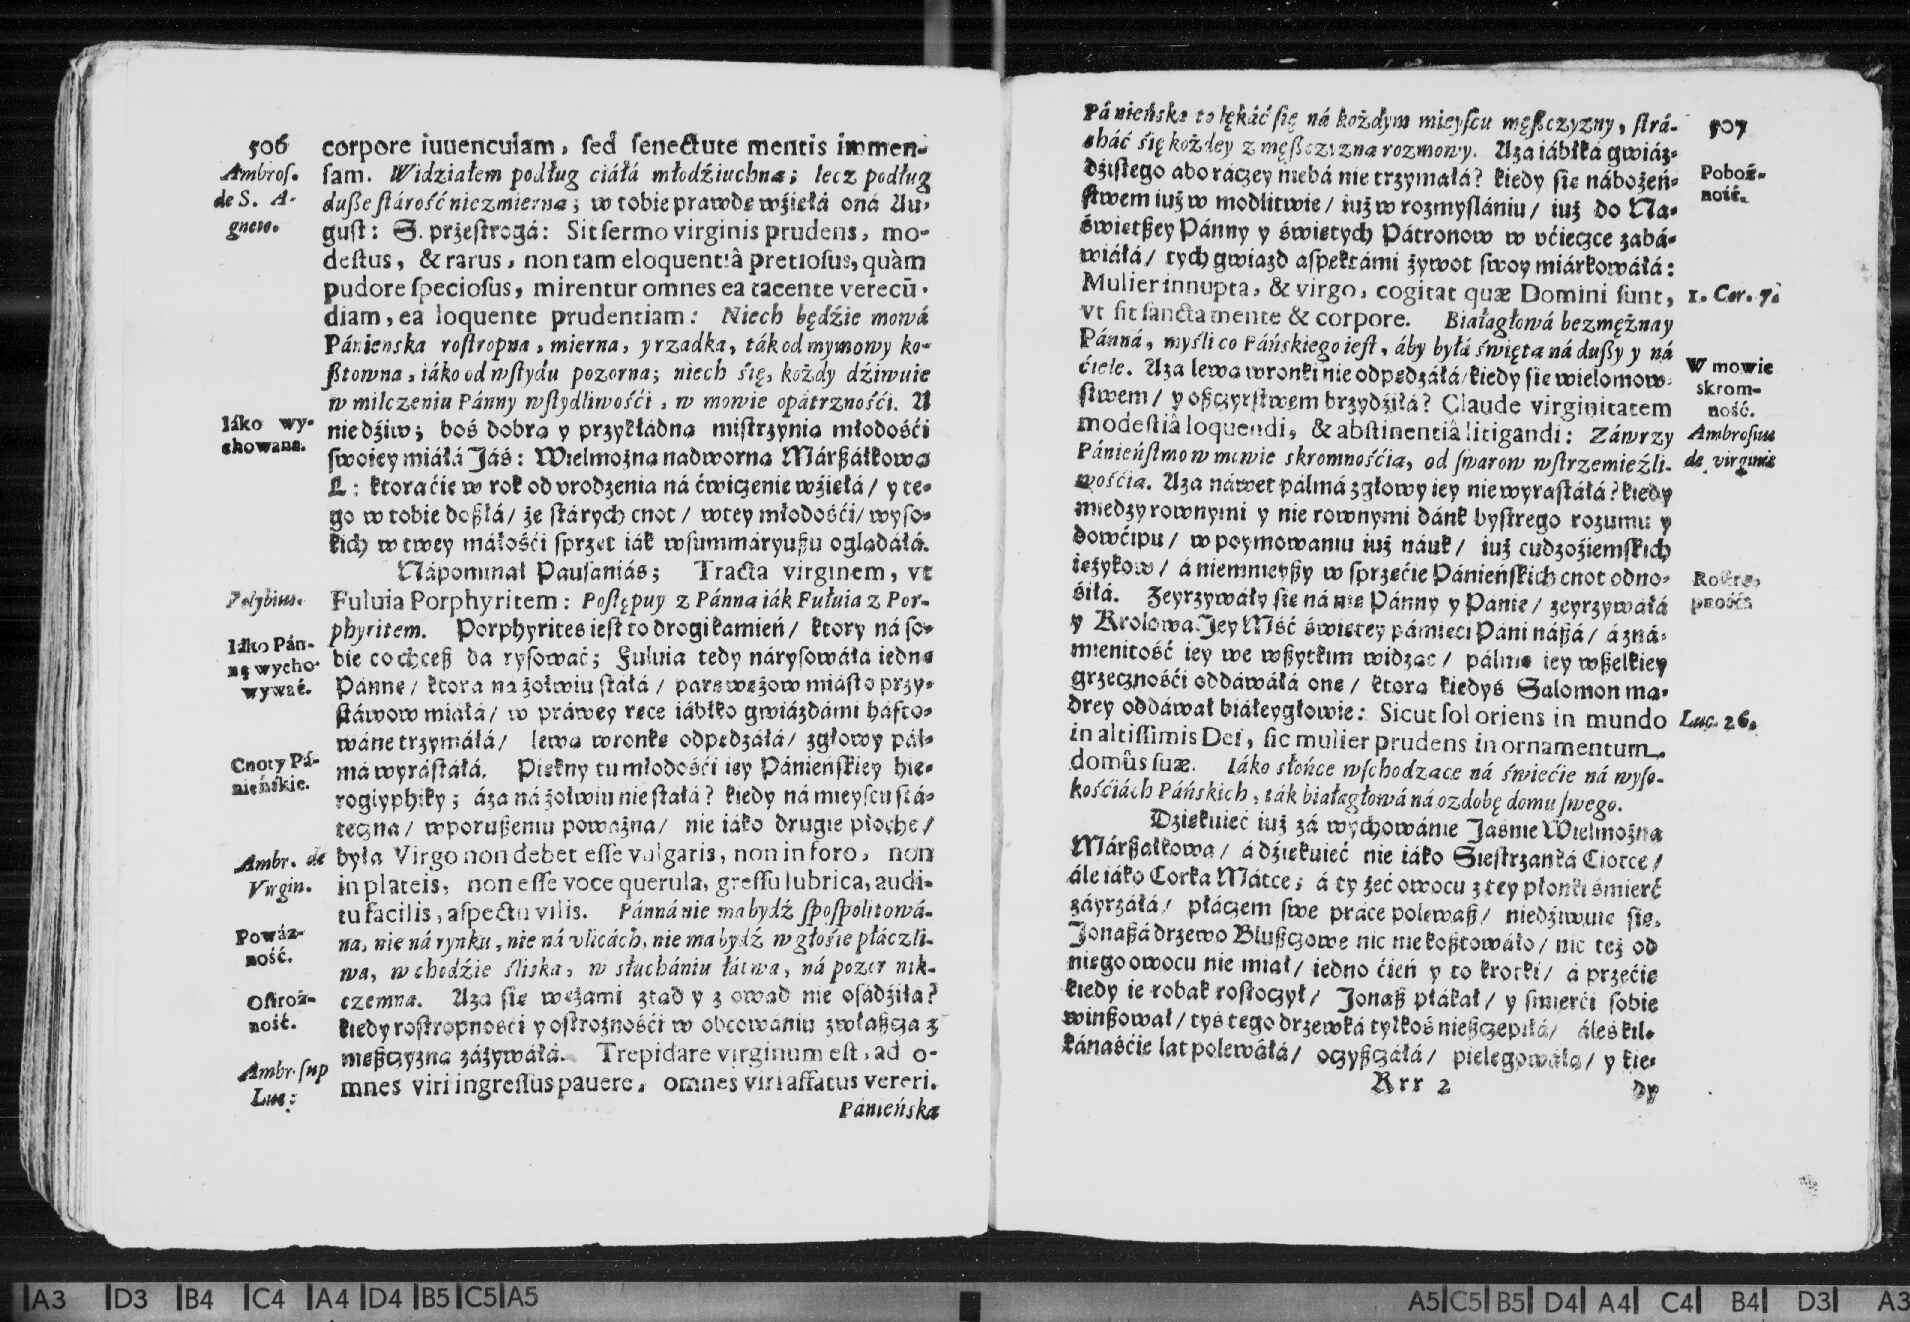 506
corpore iuuenculam, sed senectute mentis immen-
Ambros.
de S. A-
gnete.
sam. Widziałem podług ciáłá młodźiuchna; lecz podług
duße stárość niezmierna; w tobie prawdę wźięłá oná Au-
gust: S. przestrogá: Sit sermo virginis prudens, mo-
destus, & rarus, non tam eloquentiâ pretiosus, quàm
pudore speciosus, mirentur omnes ea tacente verecū-
diam, ea loquente prudentiam: Niech będźie mowá
Pánienska rostropna, mierna, y rzadka, ták od mymowy ko-
ßtowna, iáko od wstydu pozorna; niech śię, kożdy dźiwuie
w milczeniu Pánny wstydliwośći, w mowie opátrznośći. A
Iáko wy-
chowana.
nie dźiw; boś dobra y przykłádna mistrzynia młodośći
swoiey miáłá Jáś: Wielmożna nadworna Márßáłkowa
L: ktora ćie w rok od vrodzenia ná ćwiczenie wźięłá / y te-
go w tobie doßłá / że stárych cnot / w tey młodośći / wyso-
kich w twey máłośći sprzęt iák w summáryußu oglądáłá.
Nápominał Pausaniás; Tracta virginem, vt
Polybius.
Fuluia Porphyritem: Postępuy z Pánna iák Fuluia z Por-
phyritem. Porphyrites iest to drogi kámień / ktory ná so-
Iáko Pán-
nę wycho-
wywáć.
bie co chceß da rysowáć; Fuluia tedy nárysowáła iedne
Pánne / ktora na żołwiu stáłá / parę wężow miásto przy-
stáwow miáłá / w práwey ręce iábłko gwiázdámi háfto-
wáne trzymáłá / lewą wronkę odpędzáłá / z głowy pál-
Cnoty Pá-
nieńskie.
má wyrástáłá. Piękny tu młodośći iey Pánieńskiey hie-
roglyphiky; áza ná żołwiu nie stałá? kiedy ná mieyscu stá-
teczna / w porußeniu poważna / nie iáko drugie płoche /
Ambr. de
Virgin.
była Virgo non debet esse vulgaris, non in foro, non
in plateis, non esse voce querula, gressu lubrica, audi-
tu facilis, aspectu vilis. Pánná nie ma bydź spospolitowá-
Poważ-
ność.
na, nie ná rynku, nie ná vlicách, nie ma bydź w głośie płáczli-
wa, w chodźie śliska, w słuchániu łátwa, ná pozor nik-
Ostroż-
ność.
czemna. Aza się wężami ztąd y z owąd nie osádźiła?
kiedy rostropnośći y ostrożnośći w obcowániu zwłaßcza z
Ambr. sup
Luc:
męßczyzną záżywáłá. Trepidare virginum est, ad o-
mnes viri ingressus pauere, omnes viri affatus vereri.
Pánieńska
507
Pánieńska to lękáć się ná kożdym mieyscu męßczyzny, strá-
cháć śię kożdey z męßczyzna rozmowy. Aza iábłká gwiáz-
Poboż-
ność.
dźistego abo ráczey niebá nie trzymałá? kiedy się nábożeń-
stwem iuż w modlitwie / iuż w rozmyslániu / iuż do Na-
świętßey Pánny y świętych Pátronow w vćieczce zabá-
wiáłá / tych gwiazd aspektámi żywot swoy miárkowáłá:
1. Cor. 7.
Mulier innupta, & virgo, cogitat quæ Domini sunt,
vt sit sancta mente & corpore. Białagłowá bezmężna y
Pánná, myśli co Páńskiego iest, áby byłá święta ná dußy y ná
W mowie
skrom-
ność.
ćiele. Aza lewa wronki nie odpędzáłá / kiedy się wielomow-
stwem / y oßczyrstwem brzydźiłá? Claude virginitatem
Ambrosius
de virginit
modestiâ loquendi, & abstinentiâ litigandi: Záwrzy
Pánieństwo w mowie skromnośćia, od swarow wstrzemieźli-
wośćia. Aza náwet pálmá z głowy iey nie wyrastáłá? kiedy
miedzy rownymi y nie rownymi dánk bystrego rozumu y
dowćipu / w poymowaniu iuż náuk / iuż cudzoźiemskich
ięzykow / á niemnieyßy w sprzęćie Pánieńskich cnot odno-
śiłá. Zeyrzywáły się ná nię Pánny y Pánie / zeyrzywáłá
y Krolowa Jey Mść świętey pámięći Páni náßá / á zná-
mienitość iey we wßytkim widząc / pálmę iey wßelkiey
grzecznośći oddawáłá onę / ktora kiedyś Salomon má-
Luc. 26.
drey oddáwał białeygłowie: Sicut sol oriens in mundo
in altissimis Dei, sic mulier prudens in ornamentum
domûs suæ. Iáko słońce wschodzace ná świećie ná wyso-
kośćiách Páńskich, ták białagłowá ná ozdobę domu swego.
Dziękuieć iuż zá wychowánie Jaśnie Wielmożna
Márßałkowa / á dźiękuieć nie iáko Siestrzanká Ciotce /
ále iáko Corká Mátce; á ty żeć owocu z tey płonki śmierć
záyrzáłá / płáczem swe práce polewaß / niedźiwuię się.
Jonaßá drzewo Blußczowe nic nie koßtowáło / nic też od
niego owocu nie miał / iedno ćień y to krotki / á przećie
kiedy ie robak rostoczył / Jonaß płákał / y śmierći sobie
winßował / tyś tego drzewká tylkoś nießczepiłá / áleś kil-
kánaśćie lat polewáłá / oczyßczáłá / pielęgowáłá / y kie-
Rrr 2
dy